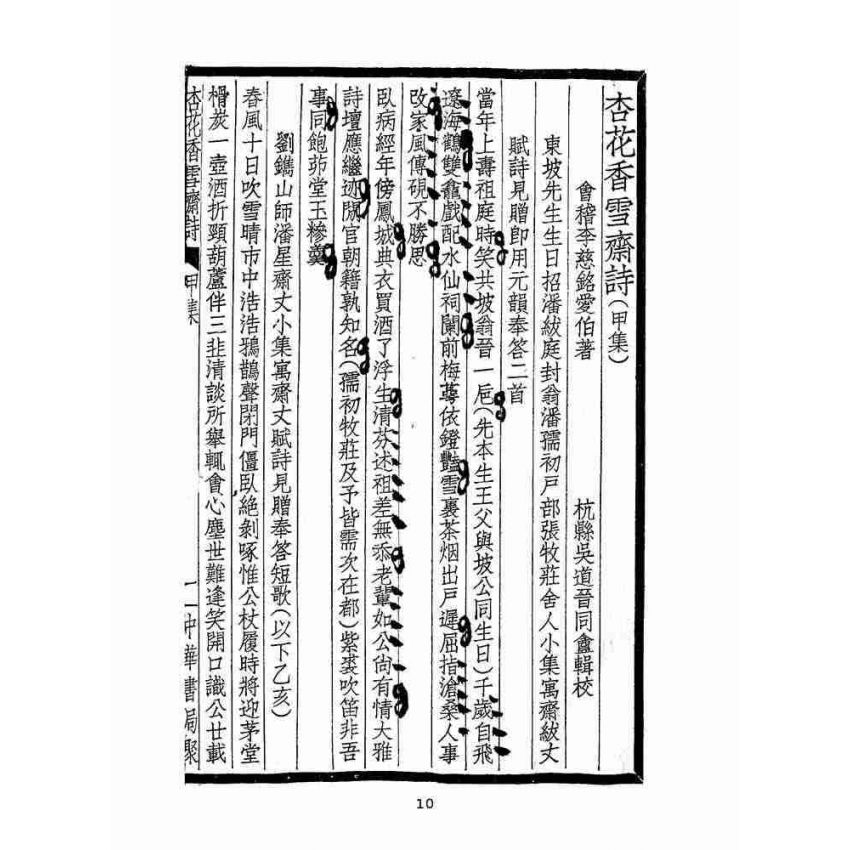 杏花香雪齋詩(甲集)
會稽李慈銘愛伯著 杭縣吳道晉同盦輯校
東坡先生生日招潘紱庭封翁潘孺初戶部張牧莊舍人小集寓齋紱丈
賦詩見贈卽用元韻奉答二首
當年上壽祖庭時笑共坡翁晉一巵(先本生王父與坡公同生日)千歲自飛
遼海鶴雙龕戲配水仙祠闌前梅蕚依鐙豔雪裏茶烟出戶遲屈指滄桑人事
改家風傳硯不勝思
臥病經年傍鳳城典衣買酒了浮生清芬述祖差無忝老輩如公尙有情大雅
詩壇應繼迹閒官朝籍孰知名(孺初牧莊及予皆需次在都)紫裘吹笛非吾
事同飽茆堂玉糝羹
劉鐫山師潘星齋丈小集寓齋丈賦詩見贈奉答短歌(以下乙亥)
春風十日吹雪晴市中浩浩鴉鵲聲閉門僵臥絶剝啄惟公杖履時將迎茅堂
榾炭一壺酒折頸葫蘆伴三韭清談所舉輒會心塵世難逢笑開口識公廿載
杏花香雪齋詩 甲集 一 中華書局聚
10